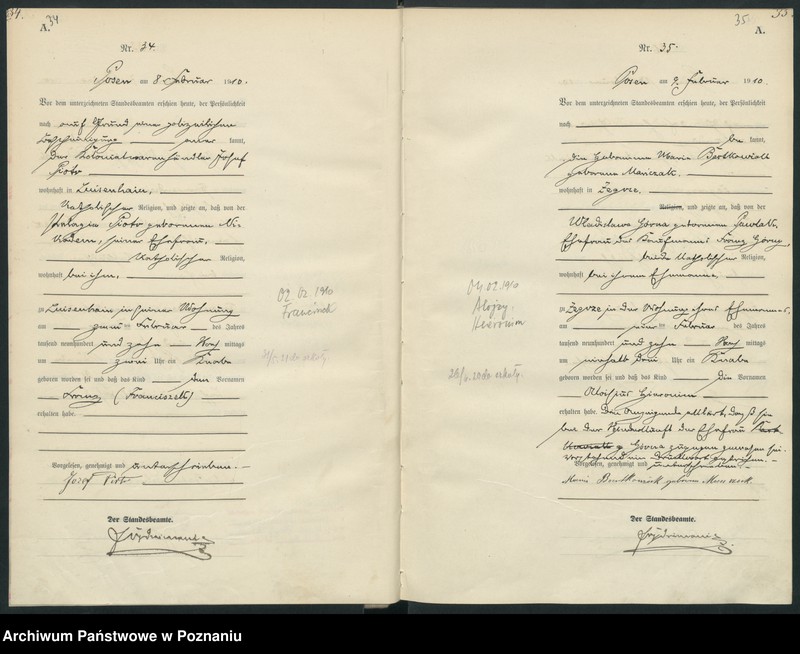 34.
34
A.
Nr. 34
Posen am 8. Februar 1910.
Vor dem unterzeichneten Standesbeamten erschien heute, der Persönlichkeit
nach auf Grund einer polizeilichen
Bescheinigung anner kannt,
der Kolonialwarenhändler Josef
Piotr
wohnhaft in Luisenhain,
katholischer Religion, und zeigte an, daß von der
Pelagia Piotr geborenen
seiner Ehefrau,
katholischer Religion,
wohnhaft bei ihm,
zu Luisenhain in seiner Wohnung
am zwei ten Februar des Jahres
tausend neunhundert und zehn Vor mittags
um zwei Uhr ein Knabe
geboren worden sei und daß das Kind den Vornamen
Franz (Franciszek)
erhalten habe.
Vorgelesen, genehmigt und unterschrieben.
Józef Piotr
Der Standesbeamte.
02 02 1910
Franciszek
35.
35
A.
Nr. 35.
Posen am 9. Februar 1910.
Vor dem unterzeichneten Standesbeamten erschien heute, der Persönlichkeit
nach
be kannt,
die Hebamme Maria Bartkowiak
geborene Marciszak,
wohnhaft in Zegrze,
Religion, und zeigte an, daß von der
Wladislawa Górna geborenen Pawlak,
Ehefrau des Kaufmanns Franz Górny
beide katholischer Religion,
wohnhaft bei ihrem Ehemanne,
zu Zegrze in der Wohnung ihres Ehemannes,
am vier ten Februar des Jahres
tausend neunhundert und zehn Vor mittags
um einhalb drei Uhr ein Knabe
geboren worden sei und daß das Kind die Vornamen
Aloisius Hieronim
erhalten habe. Die Anzeigende erklärt, daß sie
bei der Niederkunft der Ehefrau
Górna zugegen gewesen sei.
Vorstehend ein Druckwort gestrichen.
Vorgelesen, genehmigt und unterschrieben.
Bartkowiak geborene
Der Standesbeamte.
04.02.1910
Alojzy
Hieronim
Archiwum Państwowe w Poznaniu